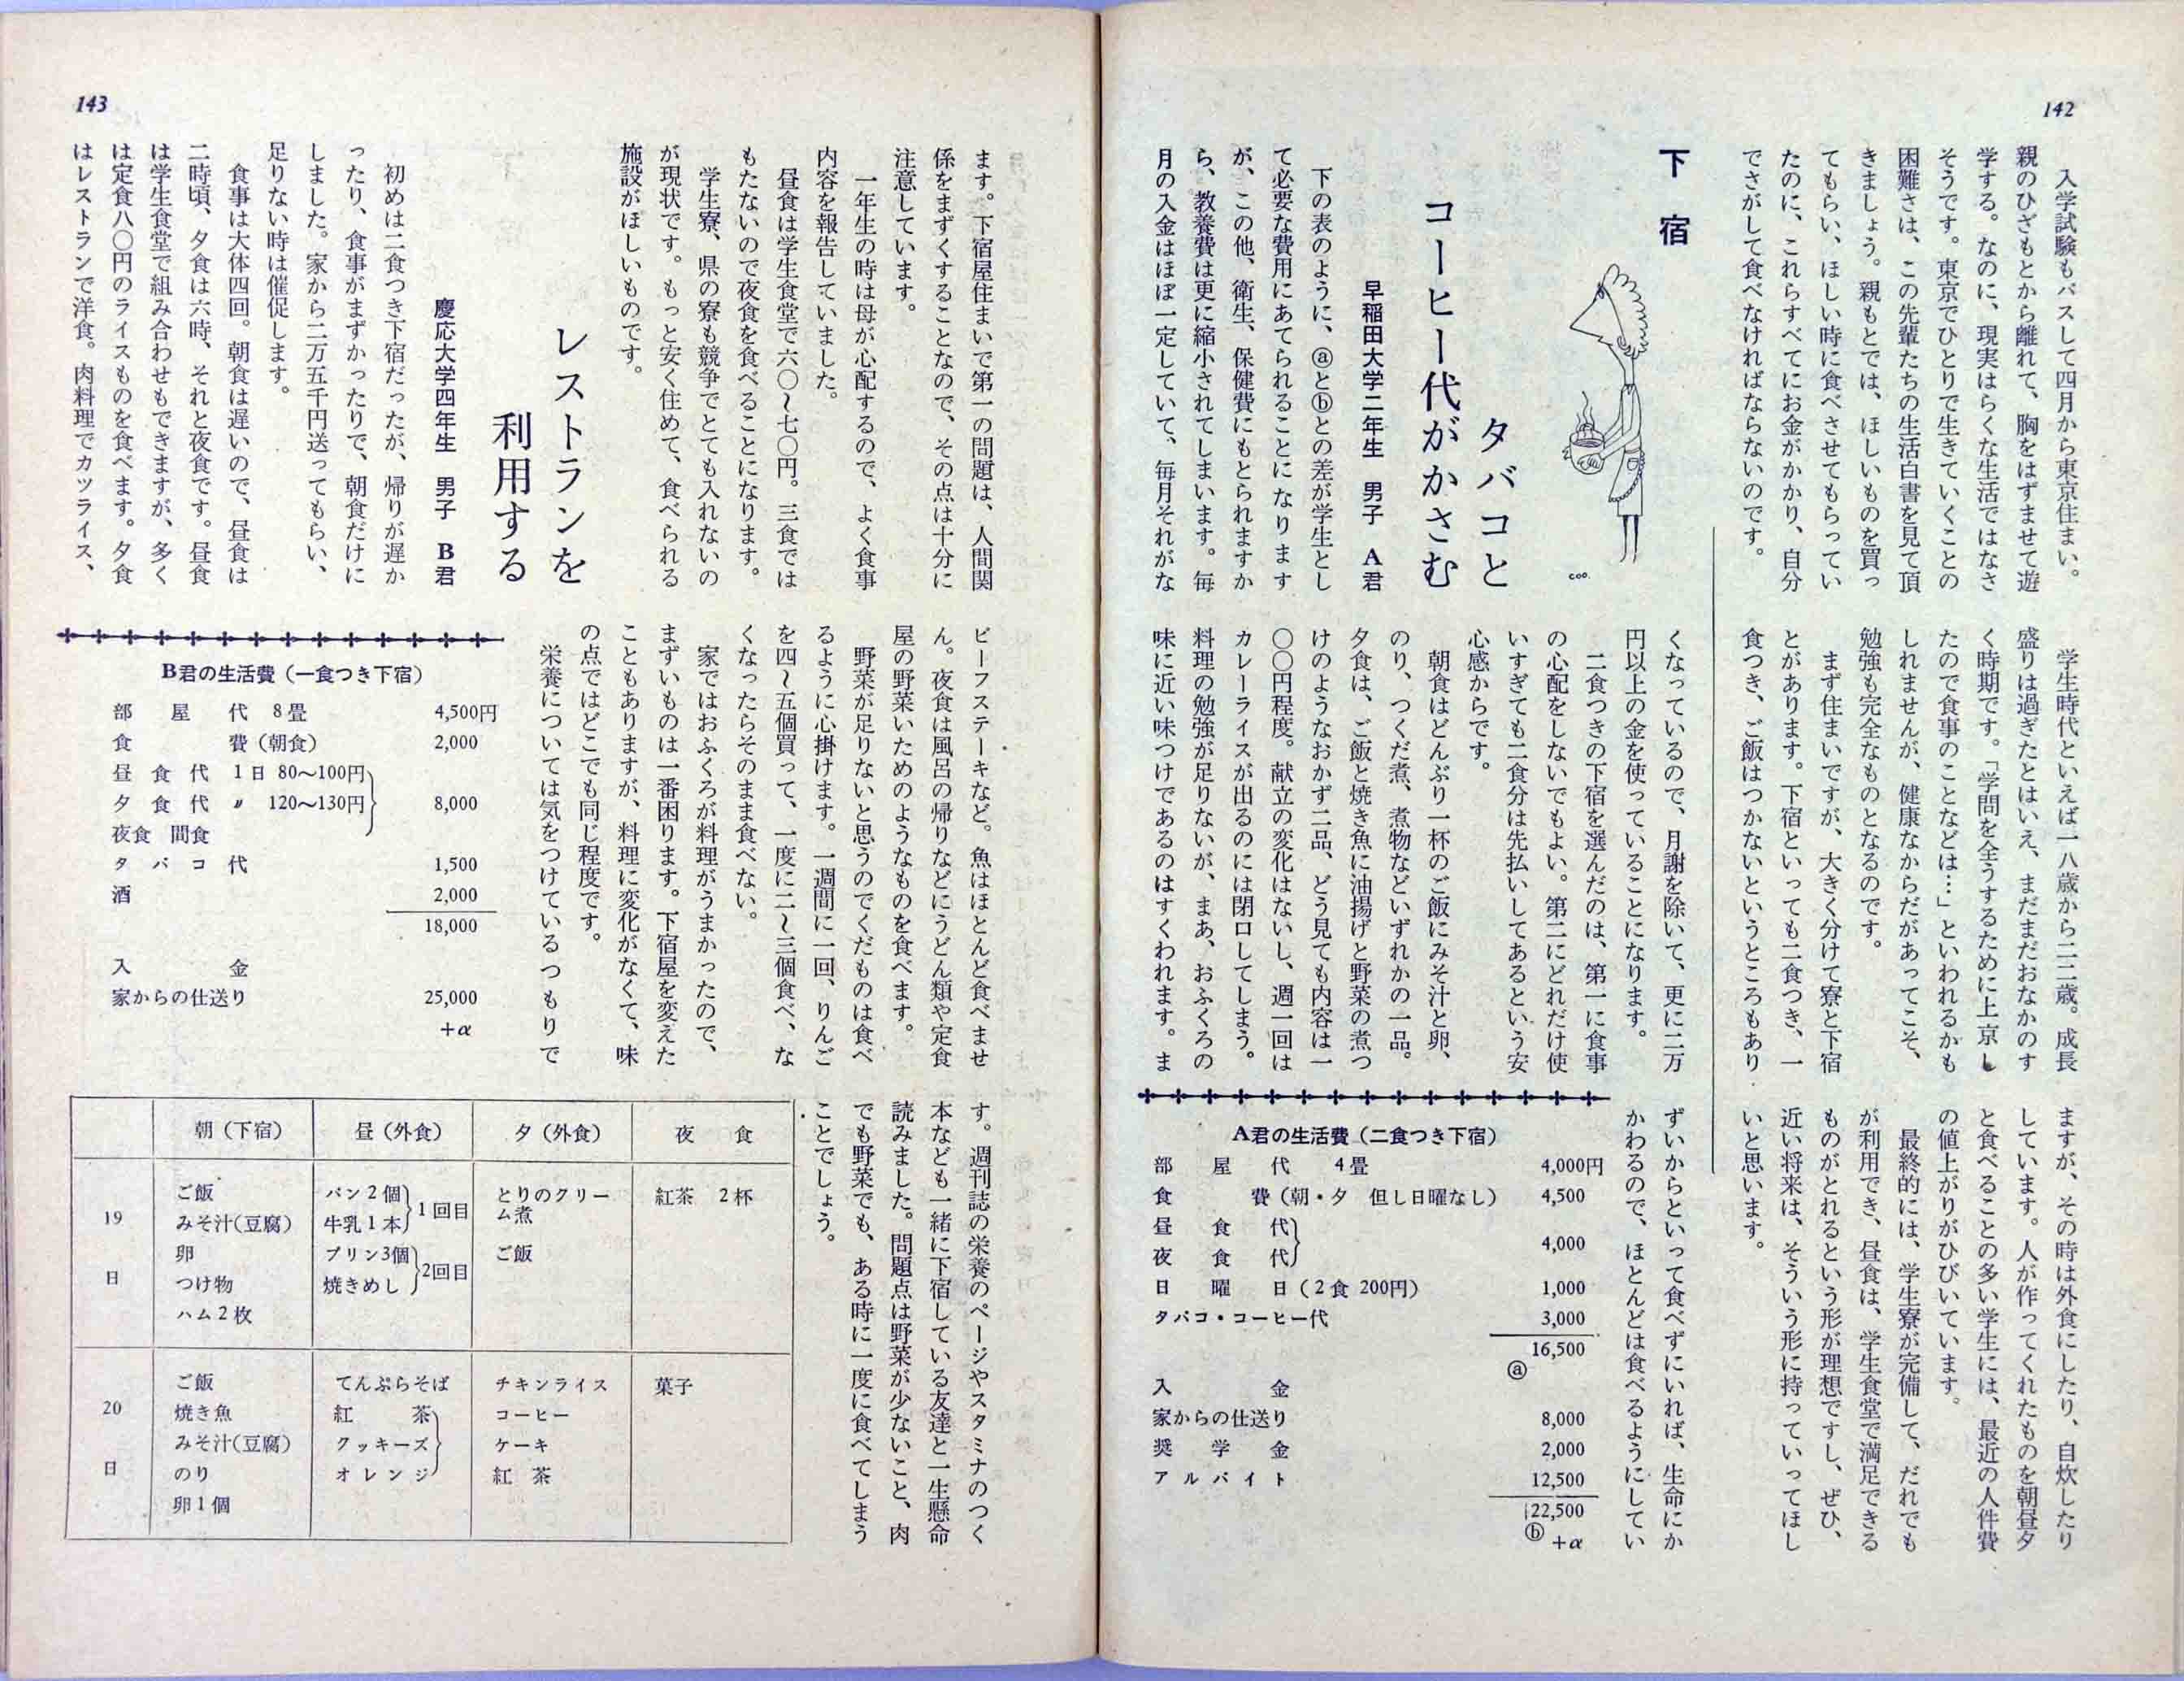 142
入学試験もパスして四月から東京住まい。
親のひざもとから離れて、胸をはずませて遊
学する。なのに、現実はらくな生活ではなさ
そうです。東京でひとりで生きていくことの
困難さは、この先輩たちの生活白書を見て頂
きましょう。親もとでは、ほしいものを買っ
てもらい、ほしい時に食べさせてもらってい
たのに、これらすべてにお金がかかり、自分
でさがして食べなければならないのです。
学生時代といえば一八歳から二二歳。成長
盛りは過ぎたとはいえ、まだまだおなかのす
く時期です。「学問を全うするために上京し
たので食事のことなどは…」といわれるかも
しれませんが、健康なからだがあってこそ、
勉強も完全なものとなるのです。
まず住まいですが、大きく分けて寮と下宿
とがあります。下宿といっても二食つき、一
食つき、ご飯はつかないというところもあり
ますが、その時は外食にしたり、自炊したり
しています。人が作ってくれたものを朝昼夕
と食べることの多い学生には、最近の人件費
の値上がりがひびいています。
最終的には、学生寮が完備して、だれでも
が利用でき、昼食は、学生食堂で満足できる
ものがとれるという形が理想ですし、ぜひ、
近い将来は、そういう形に持っていってほし
いと思います。
下宿
coo.
タバコと
コーヒー代がかさむ
早稲田大学二年生 男子 A君
下の表のように、ⓐとⓑとの差が学生とし
て必要な費用にあてられることになります
が、この他、衛生、保健費にもとられますか
ら、教養費は更に縮小されてしまいます。毎
月の入金はほぼ一定していて、毎月それがな
くなっているので、月謝を除いて、更に二万
円以上の金を使っていることになります。
二食つきの下宿を選んだのは、第一に食事
の心配をしないでもよい。第二にどれだけ使
いすぎても二食分は先払いしてあるという安
心感からです。
朝食はどんぶり一杯のご飯にみそ汁と卵、
のり、つくだ煮、煮物などいずれかの一品。
夕食は、ご飯と焼き魚に油揚げと野菜の煮つ
けのようなおかず二品、どう見ても内容は一
〇〇円程度。献立の変化はないし、週一回は
カレーライスが出るのには閉口してしまう。
料理の勉強が足りないが、まあ、おふくろの
味に近い味つけであるのはすくわれます。ま
ずいからといって食べずにいれば、生命にか
かわるので、ほとんどは食べるようにしてい
A君の生活費（二食つき下宿）
部屋代 4畳 4,000円
食費（朝・夕 但し日曜なし） 4,500
昼食代
夜食代 4,000
日曜日（2食 200円） 1,000
タバコ・コーヒー代 3,000
16,500
ⓐ
入金
家からの仕送り 8,000
奨学金 2,000
アルバイト 12,500
22,500
ⓑ +α
143
ます。下宿屋住まいで第一の問題は、人間関
係をまずくすることなので、その点は十分に
注意しています。
一年生の時は母が心配するので、よく食事
内容を報告していました。
昼食は学生食堂で六〇～七〇円。三食では
もたないので夜食を食べることになります。
学生寮、県の寮も競争でとても入れないの
が現状です。もっと安く住めて、食べられる
施設がほしいものです。
レストランを
利用する
慶応大学四年生 男子 B君
初めは二食つき下宿だったが、帰りが遅か
ったり、食事がまずかったりで、朝食だけに
しました。家から二万五千円送ってもらい、
足りない時は催促します。
食事は大体四回。朝食は遅いので、昼食は
二時頃、夕食は六時、それと夜食です。昼食
は学生食堂で組み合わせもできますが、多く
は定食八〇円のライスものを食べます。夕食
はレストランで洋食。肉料理でカツライス、
ビーフステーキなど。魚はほとんど食べませ
ん。夜食は風呂の帰りなどにうどん類や定食
屋の野菜いためのようなものを食べます。
野菜が足りないと思うのでくだものは食べ
るように心掛けます。一週間に一回、りんご
を四～五個買って、一度に二～三個食べ、な
くなったらそのまま食べない。
家ではおふくろが料理がうまかったので、
まずいものは一番困ります。下宿屋を変えた
こともありますが、料理に変化がなくて、味
の点ではどこでも同じ程度です。
栄養については気をつけているつもりで
す。週刊誌の栄養のページやスタミナのつく
本なども一緒に下宿している友達と一生懸命
読みました。問題点は野菜が少ないこと、肉
でも野菜でも、ある時に一度に食べてしまう
ことでしょう。
B君の生活費（一食つき下宿）
部屋代 8畳 4,500円
食費（朝食） 2,000
昼食代 1日 80～100円
夕食代 〃 120～130円 8,000
夜食 間食
タバコ代 1,500
酒 2,000
18,000
入金
家からの仕送り 25,000
+α
朝（下宿） 昼（外食） 夕（外食） 夜食
19日
ご飯
みそ汁(豆腐)
卵
つけ物
ハム2枚
パン2個
牛乳1本 1回目
プリン3個
焼きめし 2回目
とりのクリー
ム煮
ご飯
紅茶 2杯
20日
ご飯
焼き魚
みそ汁(豆腐)
のり
卵1個
てんぷらそば
紅茶
クッキーズ
オレンジ
チキンライス
コーヒー
ケーキ
紅茶
菓子